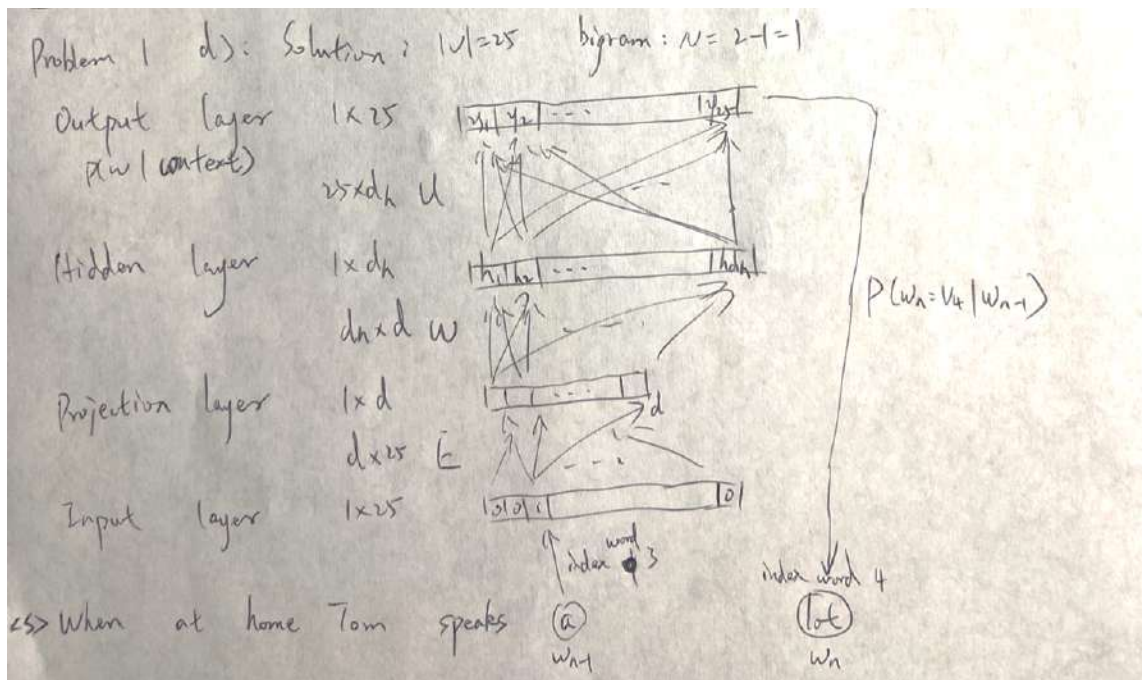 Problem 1 d): Solution: |V|=25 bigram: N = 2-1=1
Output layer 1×25 y₁ y₂ ... y₂₅
p(w | context)
25×dₕ U
Hidden layer 1×dₕ h₁ h₂ ... hdₕ
P(wₙ=V₄|wₙ₋₁)
dₕ×d W
Projection layer 1×d ... d
d×25 E ...
Input layer 1×25 0 0 1 0
index word 3
index word 4
<s> When at home Tom speaks a lot
wₙ₋₁ wₙ